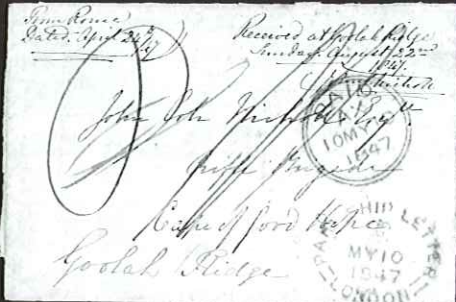 From Rome
Dated April 24th
/47
Received at Goolah Ridge
Sunday August 22nd
1847
John Cole Esqre
Rifle Brigade
Cape of Good Hope
Goolah Ridge
PAID
10 MY 10
1847
SHIP LETTER
MY 10
1847
LONDON